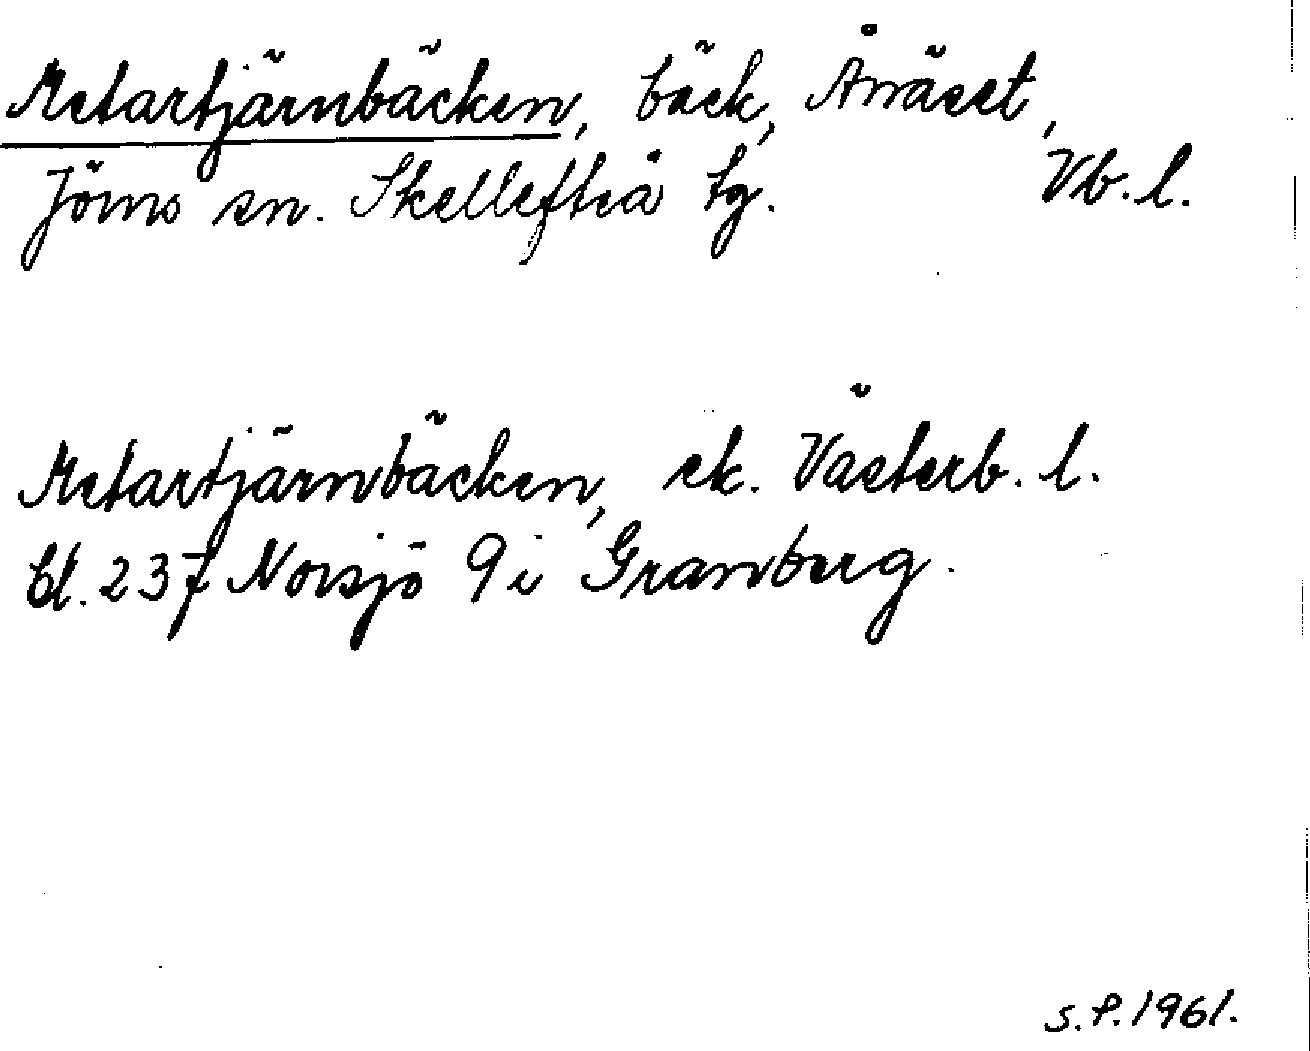 Metartjärnbäcken, bäck, Ånäset,
Jörns sn. Skellefteå tg. Vb. l.
Metartjärnbäcken, ek. Västerb. l.
bl. 237 Norsjö 9 i Granberg.
S.P. 1961.